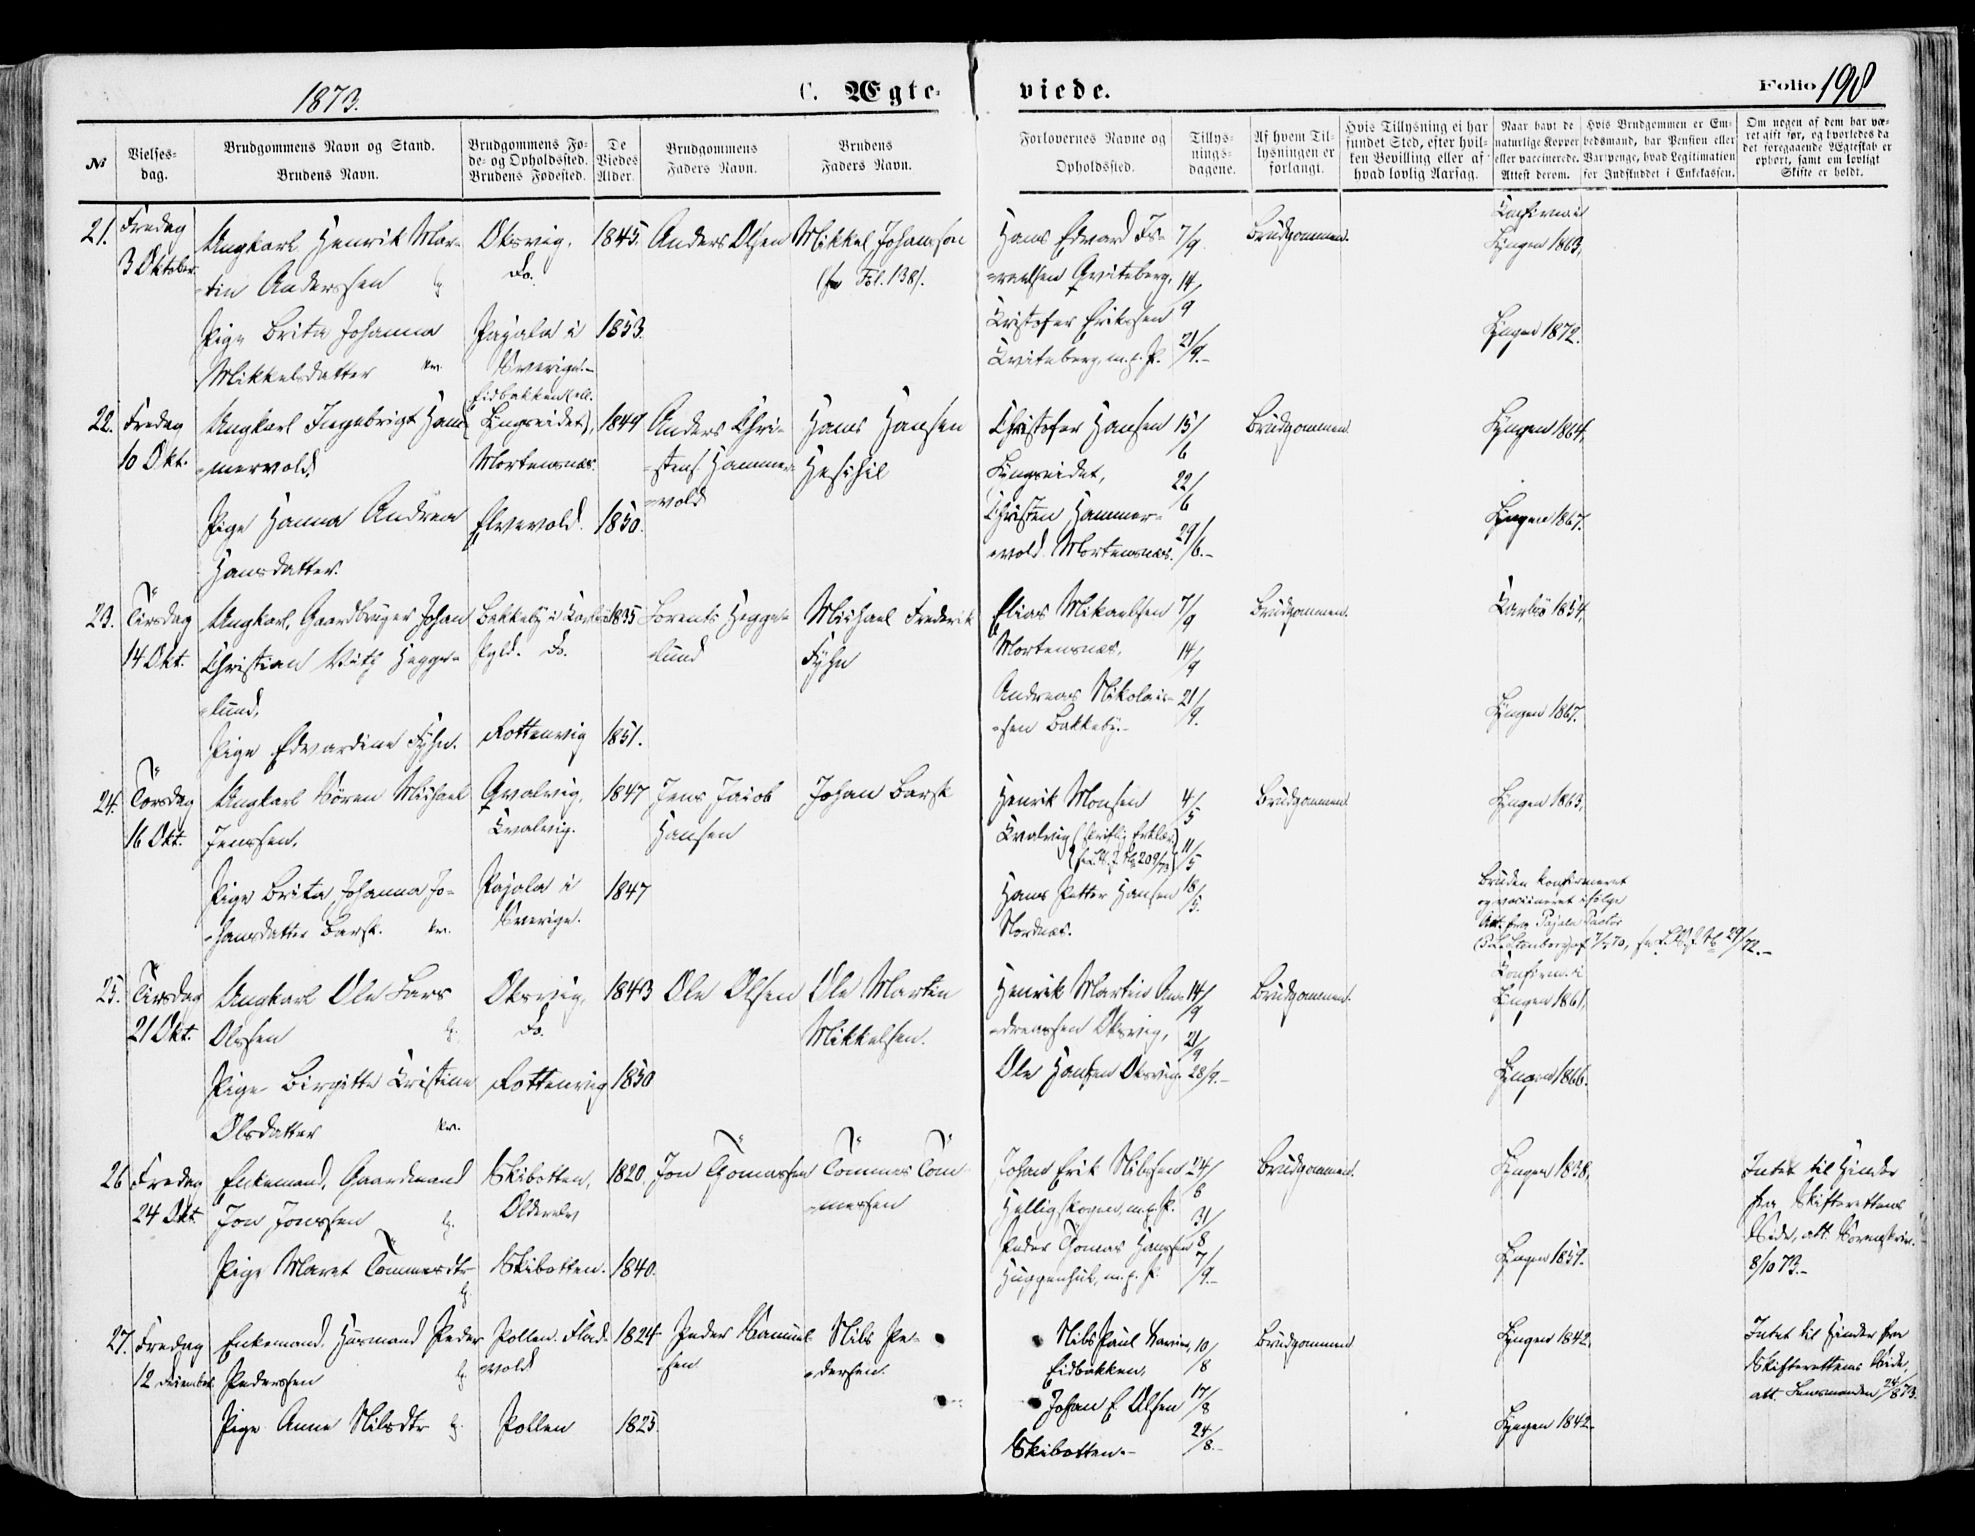 1873.
C. Ægte-
viede.
Folio 198
No
Vielses-
dag.
Brudgommens Navn og Stand.
Brudens Navn.
Brudgommens Fø-
de- og Opholdssted.
Brudens Fødested.
De
Viedes
Alder.
Brudgommens
Faders Navn.
Brudens
Faders Navn.
Forlovernes Navne og
Opholdssted.
Tillys-
nings-
dagene.
Af hvem Til-
lysningen er
forlangt.
Hvis Tillysning ei har
fundet Sted, efter hvil-
ken Bevilling eller af
hvad lovlig Aarsag.
Naar havt de
naturlige Kopper
eller vaccinerede.
Attest derom.
Hvis Brudgommen er Em-
bedsmand, har Pension eller
Varpenge, hvad Legitimation
for Indskuddet i Enkekassen.
Om nogen af dem har væ-
ret gift før, og hvorledes da
det foregaaende Ægteskab er
ophørt, samt om lovligt
Skifte er holdt.
21. Fredag
3 Oktober
Ungkarl Henrik Mar-
-tin Anderssen
Pige Brita Johanna
Mikkelsdatter kv.
Oksvig,
Do.
Pajala i
Sverige.-
1845.
1853.
Anders Olsen
Mikkel Johanson
(se Fol. 138).
Hans Edvard Is-
-raelsen Qviteberg,
Kristofer Erikssen
Kviteberg, m.p.P.
7/9.
14/9
21/9.-
Brudgommen.
Konfirm. i
Lyngen 1863,
Lyngen 1872.
22. Fredag
10 Okt.
Ungkarl Ingebrigt Ham-
-mervold
Pige Hanna Andrea
Hansdatter.
Eidbakken (ell.
Lyngseidet),
Mortensnæs.
Elvevold.
1849
1850.
Anders Chri-
-stens. Hammer-
-vold
Hans Hansen
Hestihil
Christofer Hansen
Lyngseidet,
Christen Hammer-
-vold. Mortensnæs.
15/6
22/6
29/6.-
Brudgommen.
Lyngen 1864,
Lyngen 1867.
23. Tirsdag
14 Okt.
Ungkarl, Gaardbruger Johan
Christian Vitz Hegge-
-lund,
Pige Edvardine Fyhn.
Bakkeby i Karlsö
Pgld. Do.
Rottenvig
1835
1851.
Lorents Hegge-
-lund
Michael Frederik
Fyhn
Elias Mikaelsen
Mortensnæs,
Andreas Nikolai-
-sen Bakkeby.-
7/9
14/9
21/9.
Brudgommen.
Karlsö 1854,
Lyngen 1867.
24. Torsdag
16 Okt.
Ungkarl Sören Michael
Jenssen.
Pige Brita Johanna Jo-
-hansdatter Barsk. kv.
Qvalvig,
Kvalvig.
Pajala i
Sverige.
1847
1847
Jens Jacob
Hansen
Johan Barsk
Henrik Monsen
Kvalvig (skriftlig Erklær.
Hans Petter Hansen
Nordnæs.
4/5
11/5
18/5.
Brudgommen.
Lyngen 1863,
Bruden konfirmeret
og vaccineret ifölge
Att. fra Pajala Pastor
25. Tirsdag
21 Okt.
Ungkarl Ole Lars
Olssen
Pige Birgitte Kristine
Olsdatter kv.
Oksvig,
Do.
Rottenvig
1843
1850
Ole Olsen
Ole Martin
Mikkelsen.
Henrik Martin An-
-dreassen Oksvig,
Ole Hansen Oksvig
14/9
21/9
28/9.-
Brudgommen.
Konfirm. i
Lyngen 1861,
Lyngen 1866.
26 Fredag
24 Okt.
Enkemand, Gaardmand
Jon Jonssen
Pige Maret Tommesdtr
Skibotten,
Olderelv
Skibotten.
1820.
1840.
Jon Thomassen
Tommes Tom-
-mesen
Johan Erik Nilssen
Helligskogen, m.p.P.
Peder Thomas Hanssen
24/8
31/8
7/9.-
Brudgommen.
Lyngen 1838,
Lyngen 1857.
Intet til Hinder
fra Skifterettens
Side, att. Sorenskriv.
8/10 73.-
27. Fredag
12 December
Enkemand, Husmand Peder
Pederssen
Pige Anne Nilsdtr
Pollen. Flad-
vold
Pollen
1824
1825.
Peder Samuel-
-sen
Nils Pe-
-dersen.
Nils Paul
Eidbakken,
Johan E. Olsen
Skibotten.-
10/8
17/8
24/8.-
Brudgommen
Lyngen 1842,
Lyngen 1842.-
Intet til Hinder fra
Skifterettens Side,
att. Lensmanden 24/8 73.